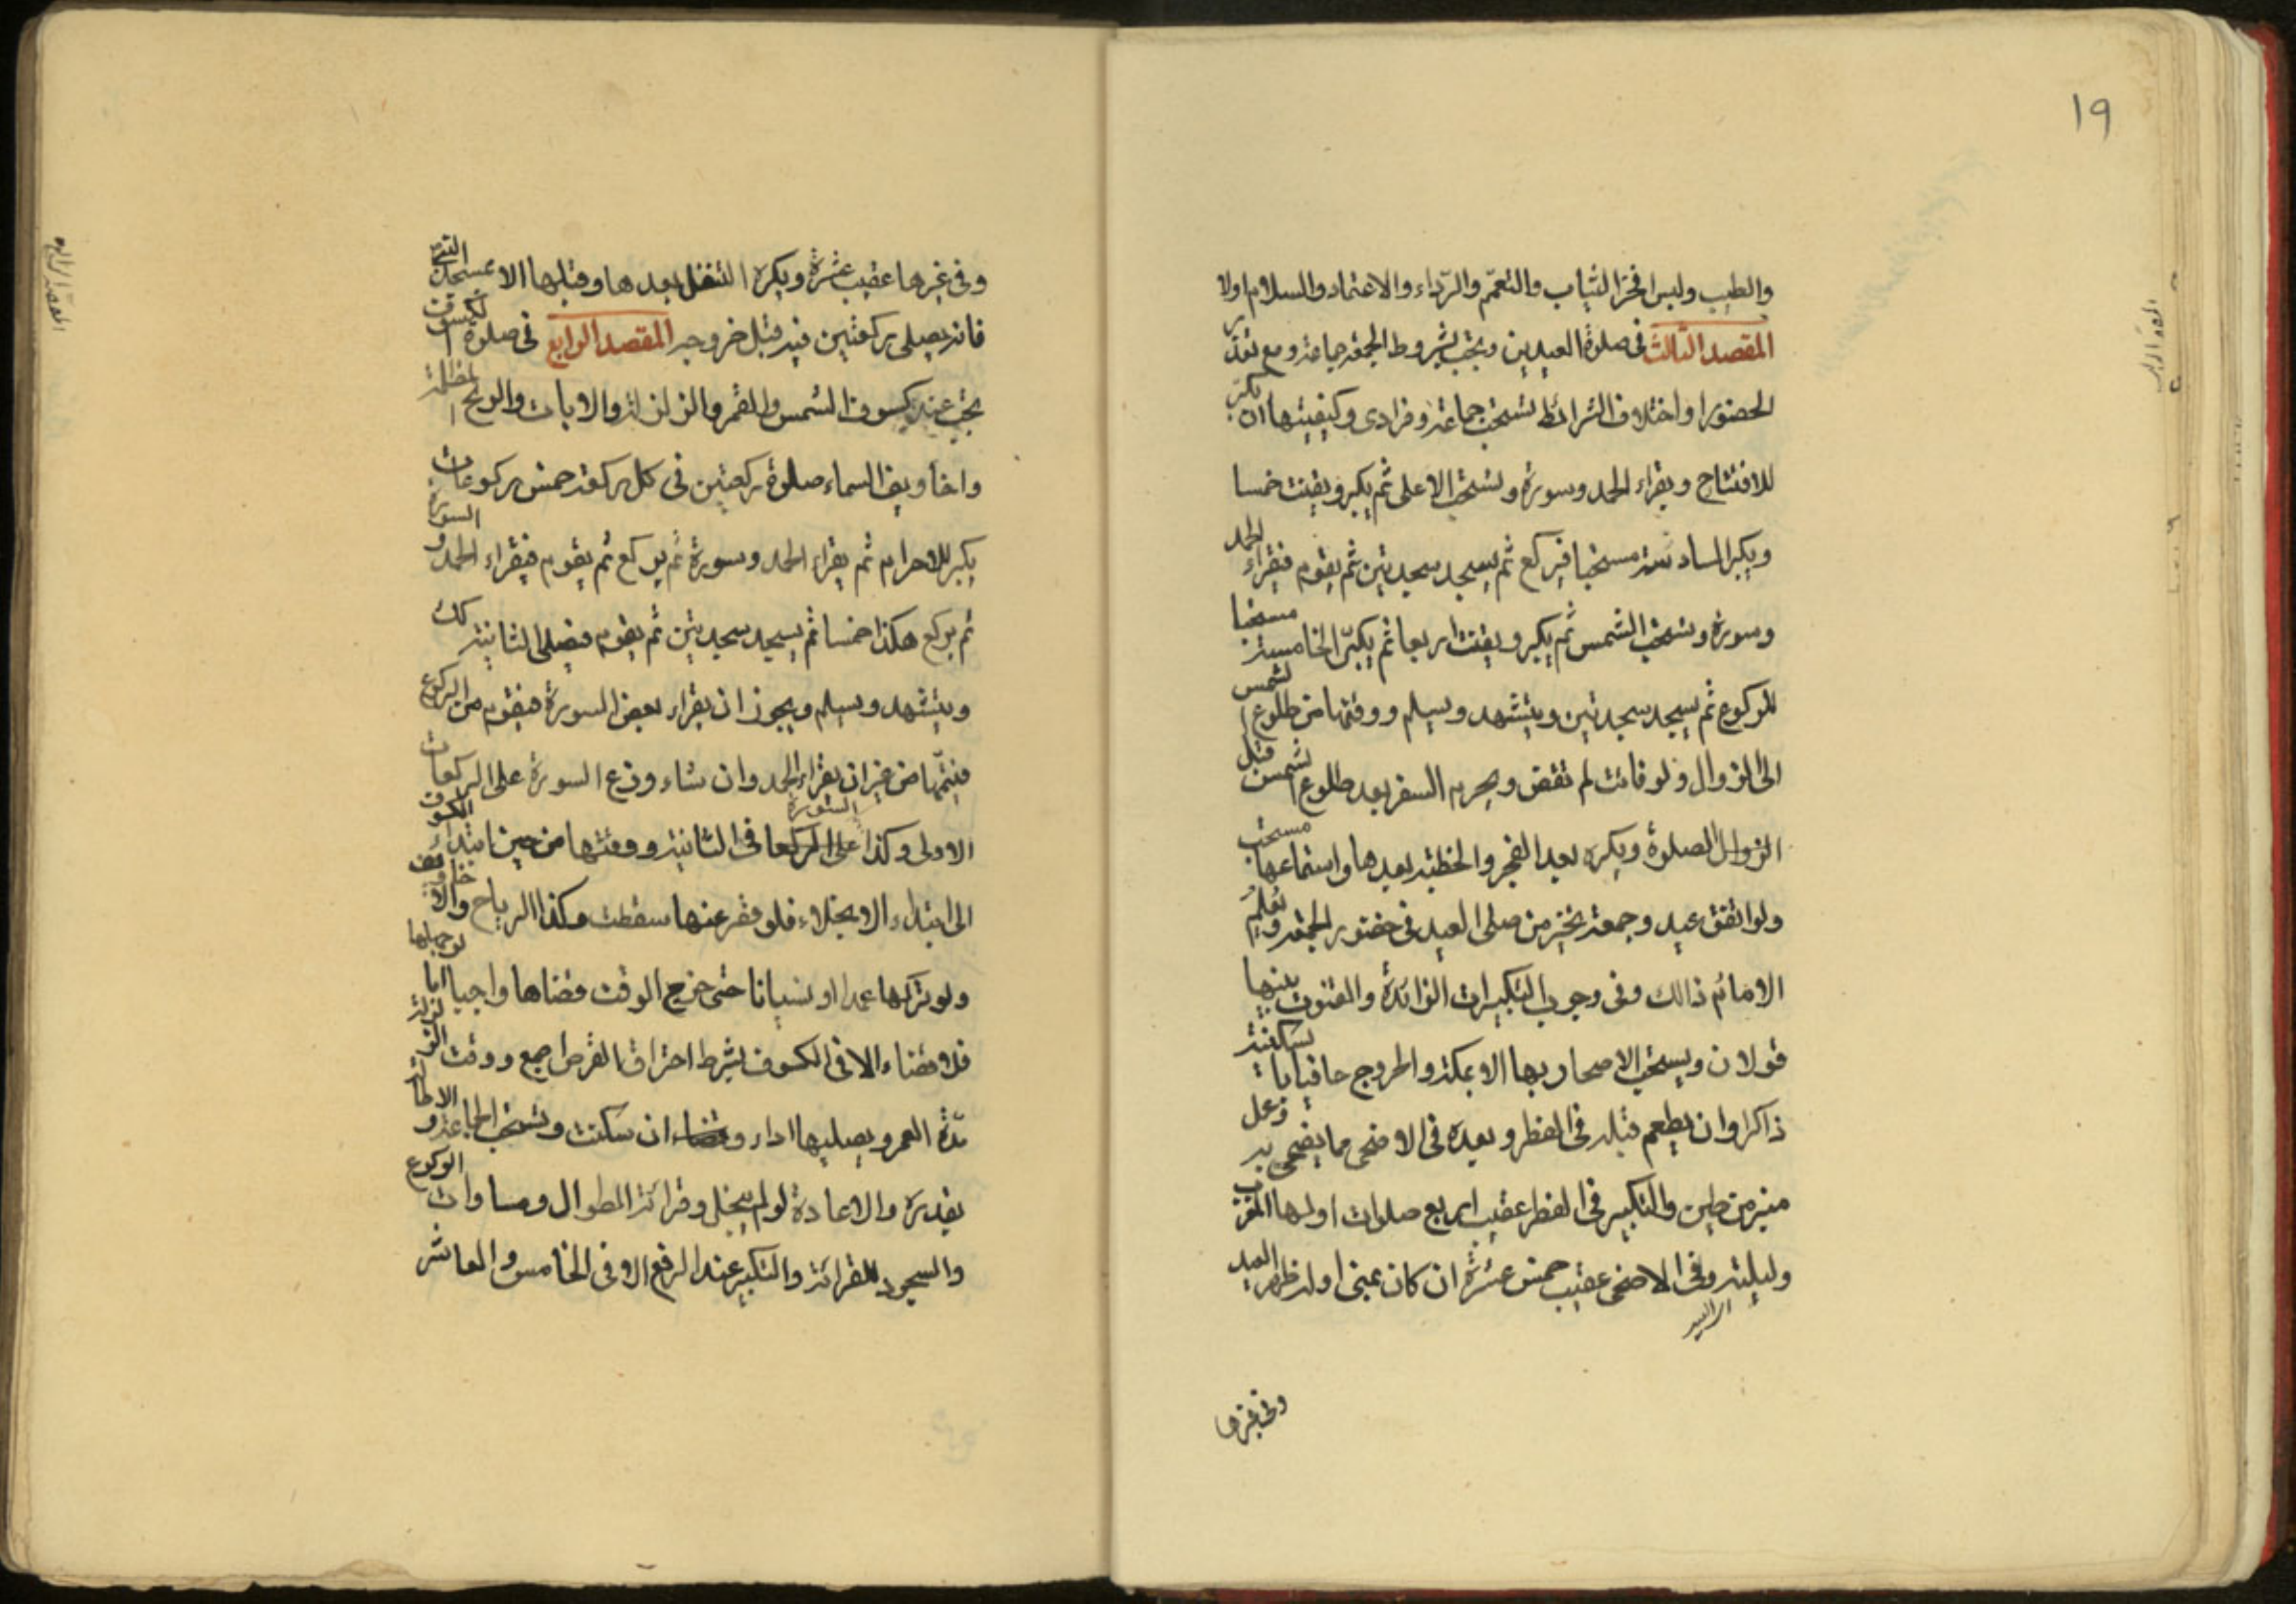 ١٩
والطيب ولبس افخر الثياب والتعمّم والرّداء والاعتماد والسلام اولا
المقصد الثالث فى صلوة العيدين وتجب بشروط الجمعة جماعة ومع تعذر
الحضور او اختلاف الشرائط تستحب جماعة وفرادى وكيفيتها ان يكبّر
للافتتاح ويقراء الحمد وسورة وتستحب الاعلى ثم يكبر ويقنت خمسا
ويكبر السادسة مستحبا فيركع ثم يسجد سجدتين ثم يقوم فيقراء الحمد
وسورة وتستحب الشمس ثم يكبر ويقنت اربعا ثم يكبّر الخامسة مستحبا
للركوع ثم يسجد سجدتين ويتشهد ويسلم ووقتها من طلوع الشمس
الى الزوال ولو فاتت لم تقض ويحرم السفر بعد طلوع الشمس قبل
الزوال الصلوة ويكره بعد الفجر والخطبة بعدها واستماعها مستحب
ولو اتفق عيد وجمعة تخير من صلى العيد فى حضور الجمعة ويعلم
الامام ذالك وفى وجوب التكبيرات الزائدة والقنوت بينها
قولان ويستحب الاصحار بها الا بمكة والخروج حافيا بالسكينة
ذاكرا وان يطعم قبله فى الفطر وبعده فى الاضحى مما يضحى به وعمل
منبر من طين والتكبير فى الفطر عقيب اربع صلوات اولها المغرب
وليلته وفى الاضحى عقيب خمس عشرة ان كان بمنى اوله ظهر العيد
وفى غيرها
وفى غيرها عقيب عشرة ويكره التنفل بعدها وقبلها الا بمسجد النبى
فانه يصلى ركعتين فيه قبل خروجه المقصد الرابع فى صلوة الكسوف
يجب عند كسوف الشمس والقمر والزلزلة والايات والريح المظلمة
واخاويف السماء صلوة ركعتين فى كل ركعة خمس ركوعات
يكبر للاحرام ثم يقراء الحمد وسورة ثم يركع ثم يقوم فيقراء الحمد والسورة
ثم يركع هكذا خمسا ثم يسجد سجدتين ثم يقوم فيصلى الثانية كك
ويتشهد ويسلم ويجوز ان يقراء بعض السورة فيقوم من الركوع
فيتمّها من غير ان يقراء الحمد وان شاء وزع السورة على الركعات
الاولى وكذا السورة على الركعا فى الثانية ووقتها من حين ابتداء الكسوف
الى ابتداء الانجلاء فلو قصر عنها سقطت وكذا الرياح والاخاويف
ولو تركها عمدا او نسيانا حتى خرج الوقت قضاها واجبا اما لو جهلها
فلا قضاء الا فى الكسوف بشرط احتراق القرص اجمع ووقت الزلزلة
مدّة العمر ويصليها اداء وقضاء ان سكنت وتستحب الجماعة والاطالة
بقدره والاعادة لو لم ينجل وقرائة الطوال ومساوات الركوع
والسجود للقرائة والتكبير عند الرفع الا فى الخامس والعاشر